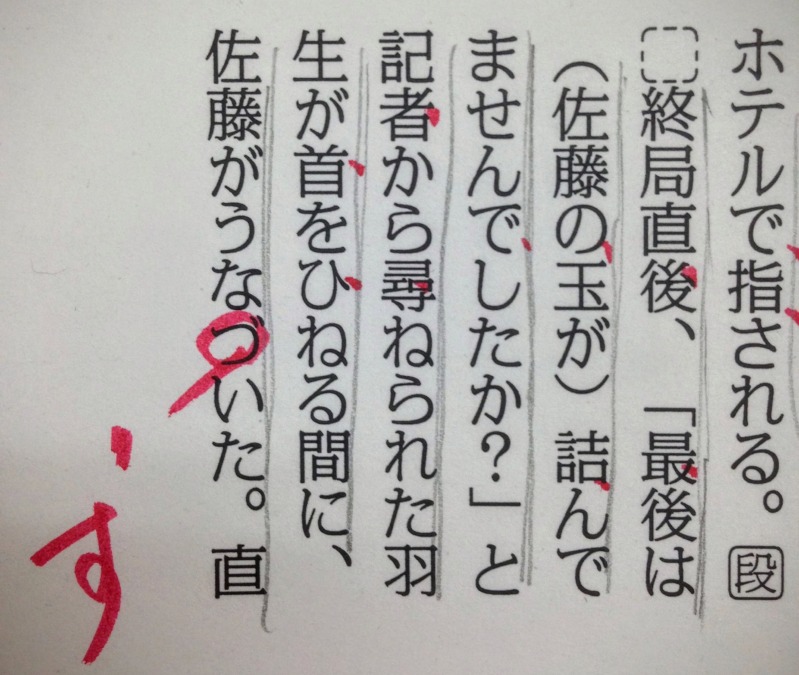 ホテルで指される。段
終局直後、「最後は
(佐藤の玉が)詰んで
ませんでしたか?」と
記者から尋ねられた羽
生が首をひねる間に、
佐藤がうなづいた。直
ず